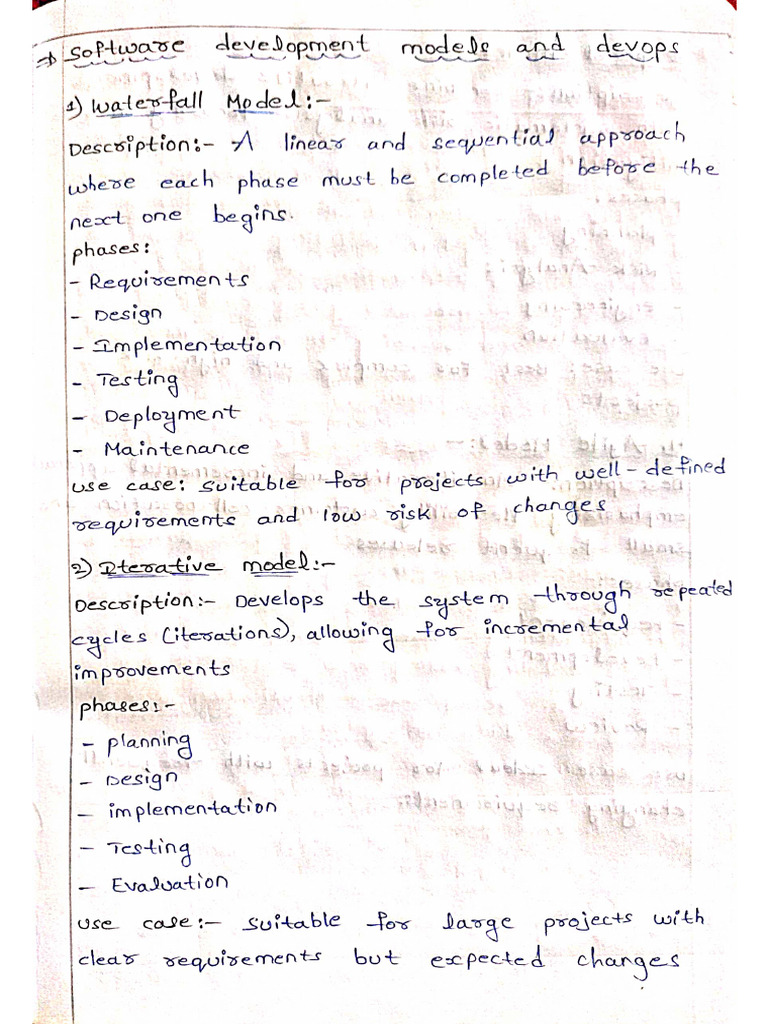 ⇒ Software development models and devops
1) Waterfall Model:-
Description:- A linear and sequential approach
where each phase must be completed before the
next one begins.
phases:
- Requirements
- Design
- Implementation
- Testing
- Deployment
- Maintenance
use case: suitable for projects with well-defined
requirements and low risk of changes
2) Iterative model:-
Description:- Develops the system through repeated
cycles (iterations), allowing for incremental
improvements
phases:-
- planning
- Design
- implementation
- Testing
- Evaluation
use case:- suitable for large projects with
clear requirements but expected changes